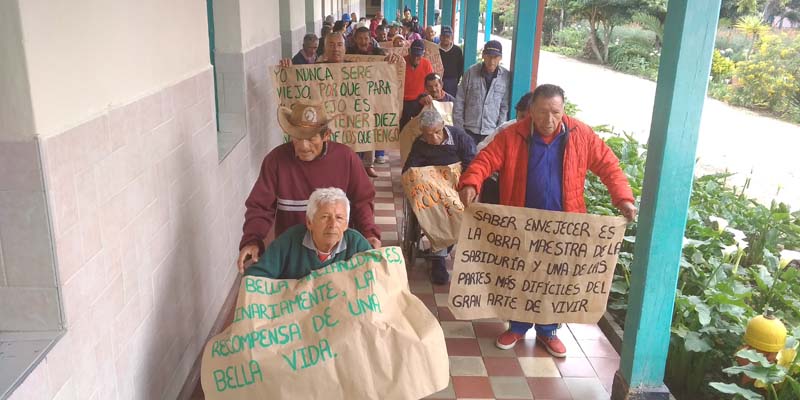 YO NUNCA SERE
VIEJO, PORQUE PARA
ES
TENER DIEZ
LOS QUE TENGO
SABER ENVEJECER ES
LA OBRA MAESTRA DE LA
SABIDURÍA Y UNA DE LAS
PARTES MAS DIFÍCILES DEL
GRAN ARTE DE VIVIR
BELLA ANCIANIDAD ES,
INARIAMENTE, LA
RECOMPENSA DE UNA
BELLA VIDA.